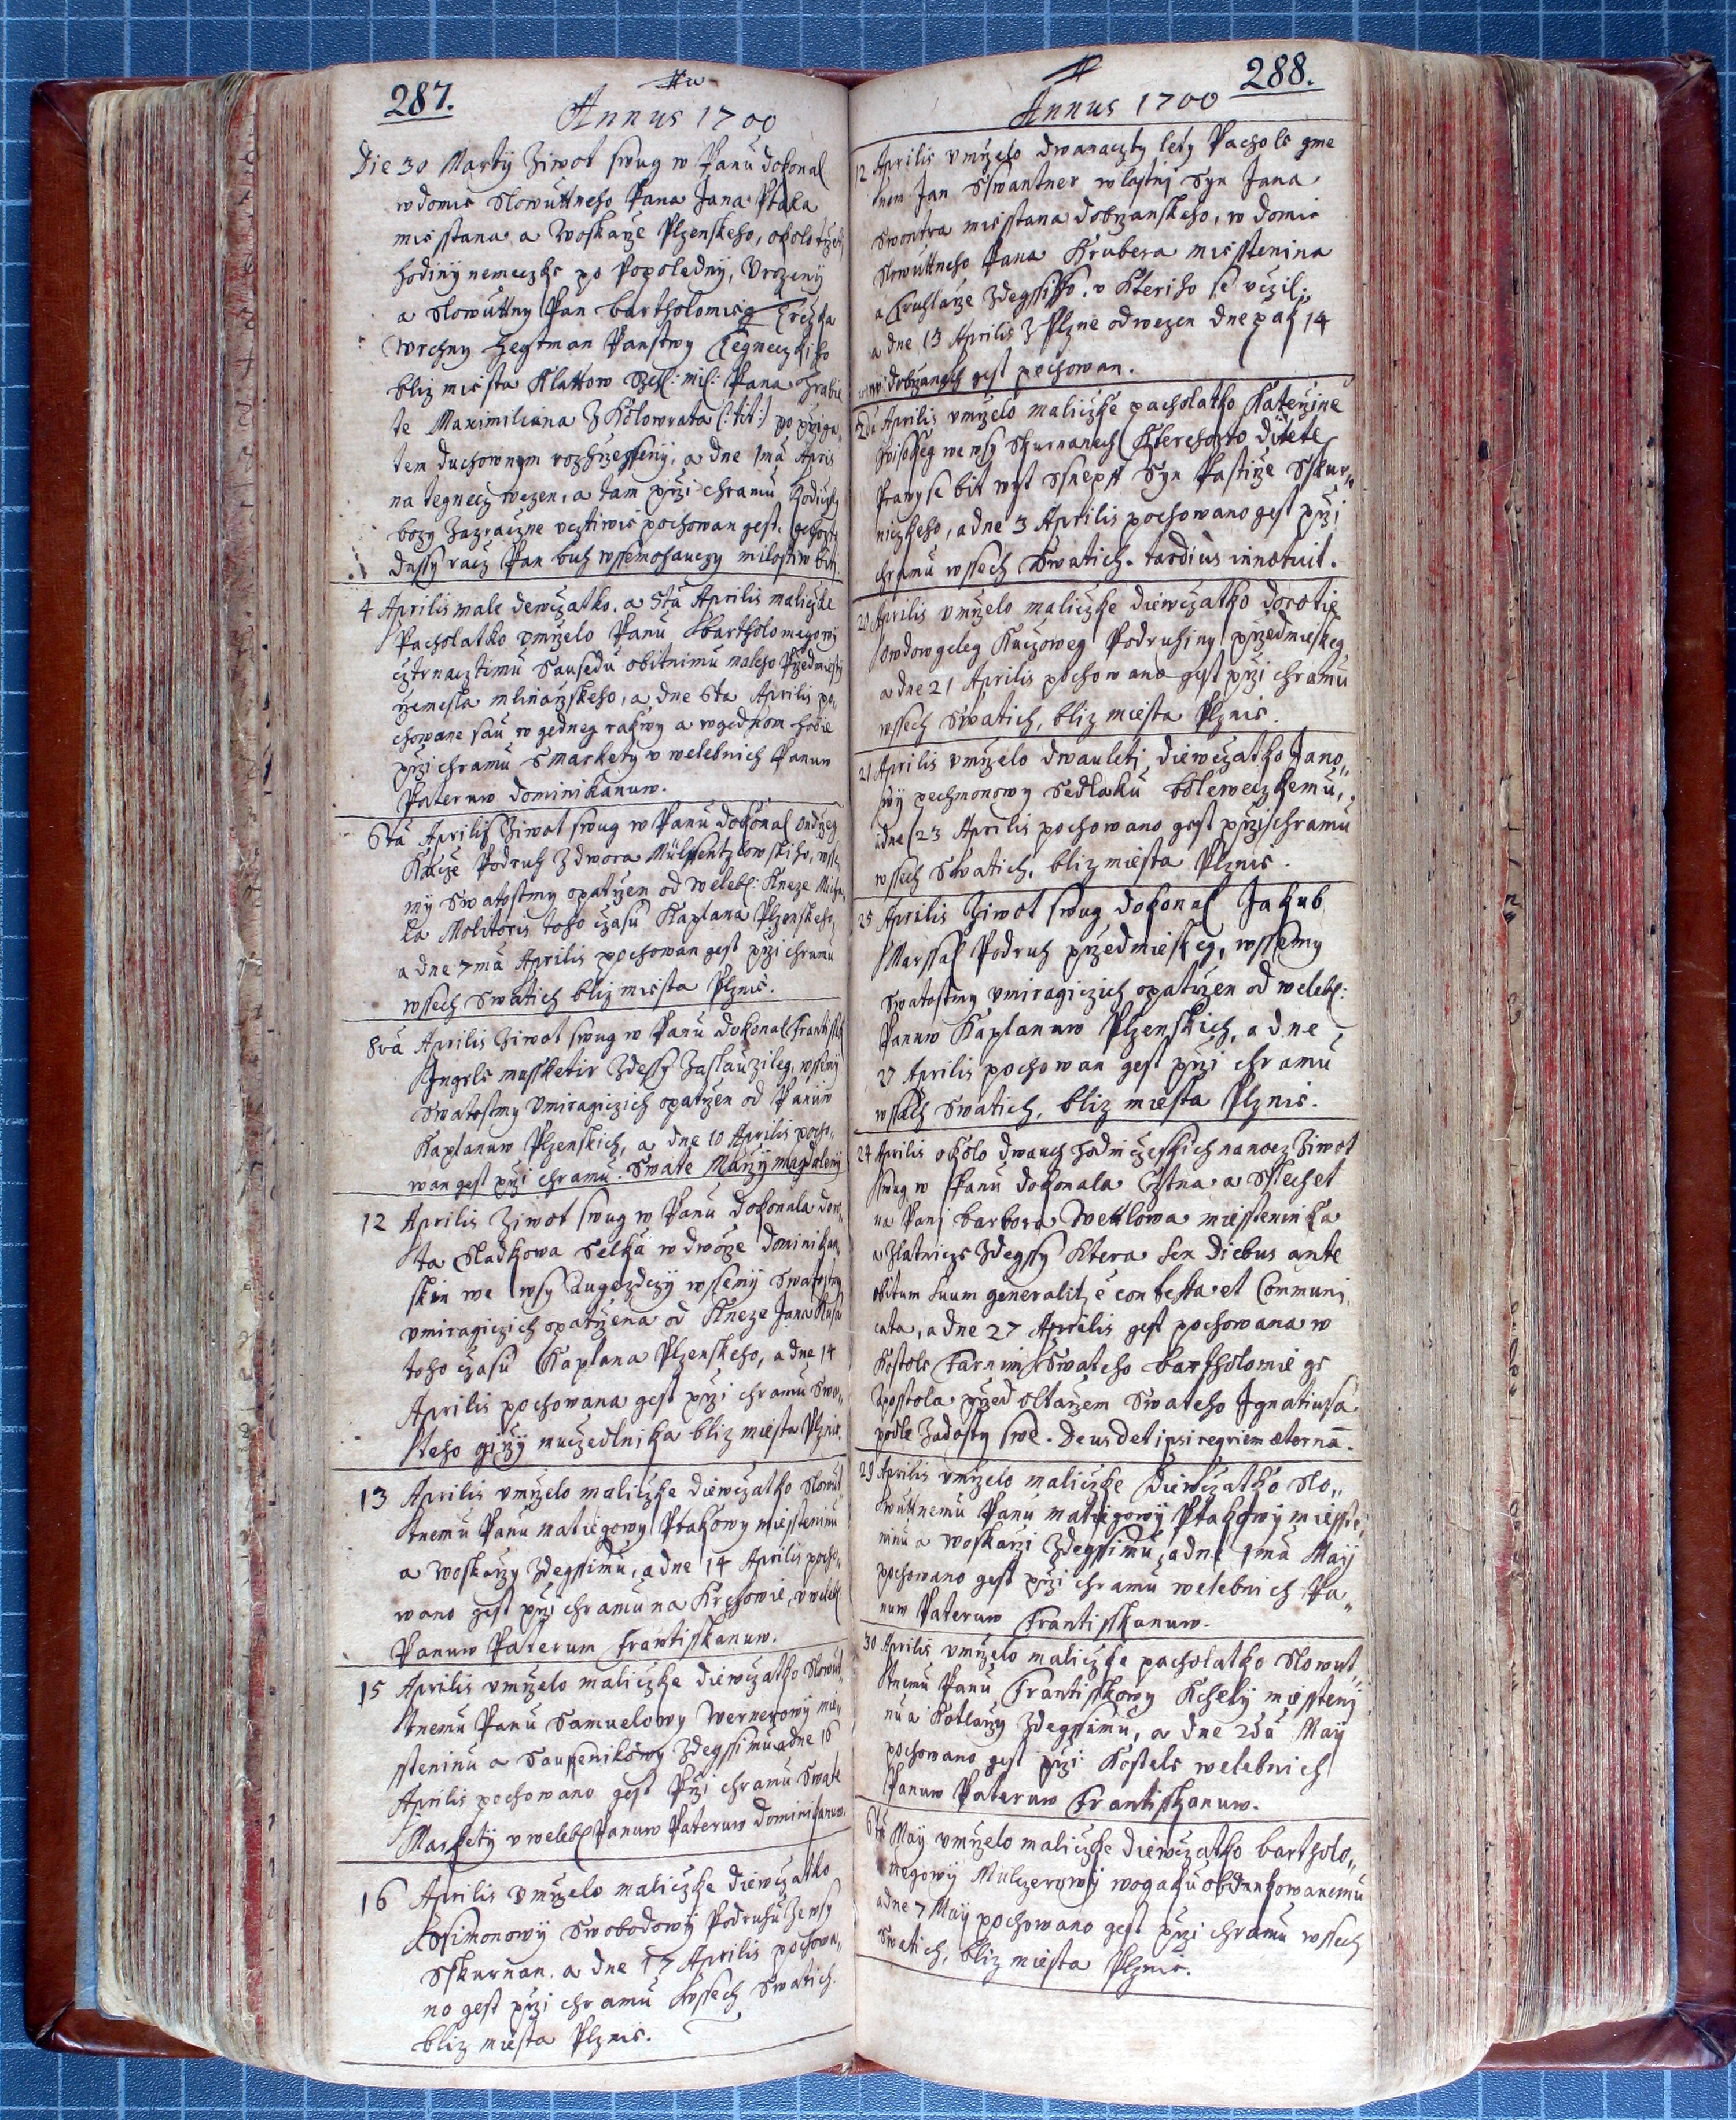 287.
Annus 1700
Die 30 Martÿ Ziwot swug w Panu dokonal
w domie Slowuttneho Pana Jana Ptaka
miesstana a Woskarze Plzenskeho, okolo
hodinÿ nemeczke po Popoledny, Urozenÿ
a Slowuttny Pan Bartholomieg
Wrchny Hegtman Panstwy
bliz miesta Klattow Pana Hrabie
te Maximiliana z Kolowrata (:tit:) po prziga
tem duchownym rozhrzesseny, a dne 1má Aprilis
na wezen, a tam przi chramu Rodiczky
bozy Zazraczne ucztiwie pochowan gest. gehozto
dussy racz Pan buh wssemohauczy milostiw biti
4 Aprilis male dewczatko, a 5tá Aprilis maliczke
Pacholatko umrzelo Panu Bartholomegowÿ
cztrnacztimu Sausedu obitnimu maleho Przedmiesti
rzemesla mlinarzskeho, a dne 6ta Aprilis po,
chowane sau w gedneg rakwy a w gednom hrobie
przi chramu S Markety u welebnich Panuw
Pateruw Dominikanuw.
6tá Aprilis Ziwot swug w Panu dokonal Ondrzeg
Podruh z dwora wsse
mÿ Swatostmy opatrzen od Welebl: Kneze Micha
la Molitoris toho czasu Kaplana Plzenskeho,
a dne 7má Aprilis pochowan gest przi chramu
wssech Swatich bliz miesta Plznie.
8vá Aprilis Ziwot swug w Panu dokonal Frantissek
mussketir zdessy Zaslauzileg, wssemÿ
Swatostmy umiragiczich opatrzen od Panuw
Kaplanuw Plzenskich, a dne 10 Aprilis pocho,,
wan gest przi chramu Swate Marzÿ Magdalenÿ
12 Aprilis Ziwot swug w Panu dokonala Doro,
ta Sladkowa Selka w dworze Dominikan,
skem we wsy Augezdczÿ wssemÿ Swatostmy
umiragiczich opatrzena od Kneze Jana
toho czasu Kaplana Plzenskeho, a dne 14
Aprilis pochowana gest przi chramu Swa,,
teho girzÿ muczedlnika bliz miesta Plznie.
13 Aprilis umrzelo maliczke diewczatko Slowut
tnemu Panu Matiegowÿ Ptakowy miessteninu
a Woskarzy Zdegssimu, a dne 14 Aprilis pocho,,
wano gest przi chramu na Krchowie, u welebl
Panuw Pateruw Frantisskanuw.
15 Aprilis umrzelo maliczke diewczatko Slowut
tnemu Panu Samuelowy Wernerowÿ mie
ssteninu a Saukenikowy Zdegssimu a dne 16
Aprilis pochowano gest Przi chramu Swate
Marketÿ u welebl Panuw Pateruw Dominikanuw.
16 Aprilis umrzelo maliczke diewczatko
Ssimonowÿ Swobodowÿ Podruhu Ze wsy
Sskurnan, a dne 17 Aprilis pochowa,,
no gest przi chramu Wssech Swatich
bliz miesta Plznie.
288.
Annus 1700
12 Aprilis umrzelo dwanaczty lety Pachole gme
nem Jan Sswantner wlastnj Syn Jana
miesstana dobrzanskeho, w domie
Slowuttneho Pana Krubera miesstenina
a Zdegssiho, u kteriho se ucził;
a dne 13 Aprilis z Plzne odwezen dne pak 14
dobrzanech gest pochowan.
2dá Aprilis umrzelo maliczke pacholatko Katerzine
we wsy Skurnanech kterehozto ditete
Prawy se bit Syn Pastirze Sskur,,
niczkeho, a dne 3 Aprilis pochowano gest przi
chramu wssech Swatich. tardius innotuit.
20 Aprilis umrzelo maliczke diewczatko dorotie
owdowgeleg Kuczoweg Podruhiny przedmieskeg,
a dne 21 Aprilis pochowano gest przi chramu
wssech Swatich, bliz miesta Plznie.
21 Aprilis umrzelo dwauleti diewczatko Jano,,
wÿ pechmonowy Sedlaku boleweczkemu,
a dne 23 Aprilis pochowano gest przi chramu
wssech Swatich, bliz miesta Plznie.
25 Aprilis Ziwot swug dokonal Jakub
Marssal Podruh przedmieskeg, wssemy
Swatostmy umiragiczich opatrzen od welebl:
Panuw Kaplanuw Plzenskich, a dne
27 Aprilis pochowan gest przi chramu
wssech Swatich, bliz miesta Plznie.
24 Aprilis okolo dwauch hodin czeskich na nocz Ziwot
swug w Panu dokonala Cztna a Sslechet
na Panj barbora miessteninka
a Zlatnicze Zdegssy ktera sex diebus ante
obitum suum generalitr e confessa et Communi,
cata, a dne 27 Aprilis gest pochowana w
Kostele Farnim Swateho bartholomie ge
Apostola przed oltarzem Swateho Ignatiussa
podle Zadosty swe. Deus det ipsi requiem æternā.
29 Aprilis umrzelo maliczke diewczatko Slo,,
wuttnemu Panu matiegowÿ Ptakowÿ miesste,
ninu a Woskarzi Zdegssimu, a dne 1má Maÿ
pochowano gest przi chramu welebnich Pa,,
nuw Pateruw Frantisskanuw.
30 Aprilis umrzelo maliczke pacholatko Slowut,,
tnemu Panu Frantisskowy miesstenj
nu a Kotlarzy Zdegssimu, a dne 2dá Maÿ
pochowano gest przi Kostele welebnich
Panuw Pateruw Frantisskanuw.
6tá Maÿ umrzelo maliczke diewczatko bartholo,,
megowÿ wogaku obdankowanemu
a dne 7 Maÿ pochowano gest przi chramu wssech
Swatich, bliz miesta Plznie.